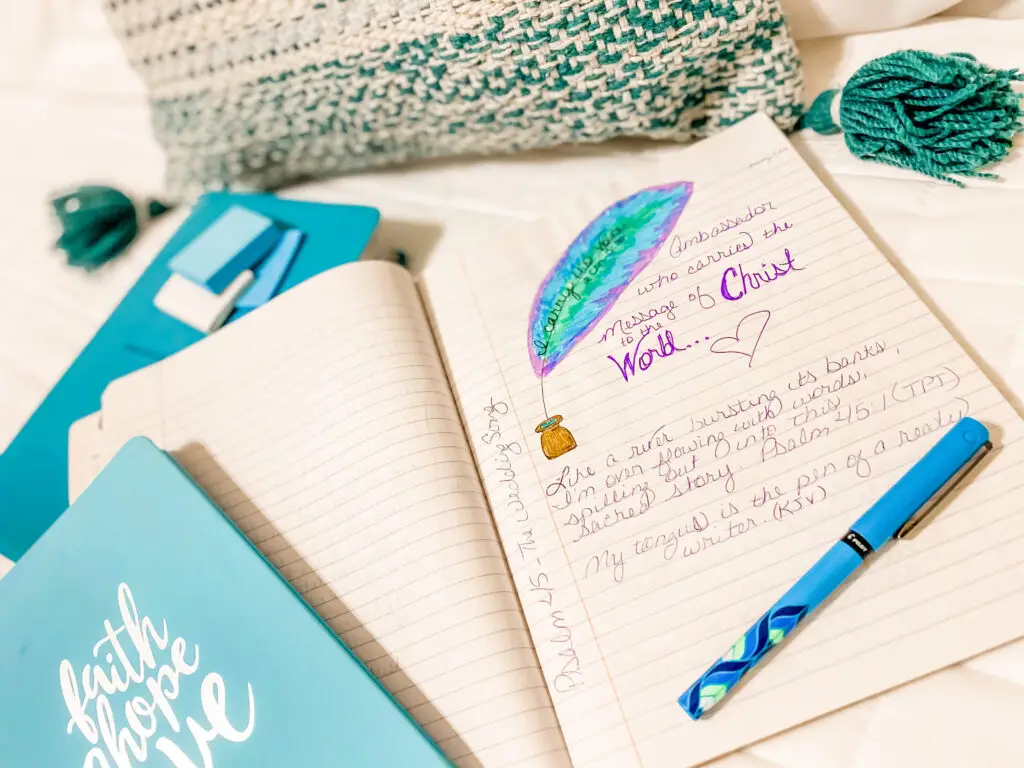 Ambassador
who carries the
message of Christ
to the
World...
Like a river bursting its banks,
I'm over flowing with words,
spilling out into this
Sacred story. Psalm 45:1 (TPT)
My tongue is the pen of a ready
writer. (KJV)
Psalm 45 - The Wedding Song
I carry
PILOT
faith
hope